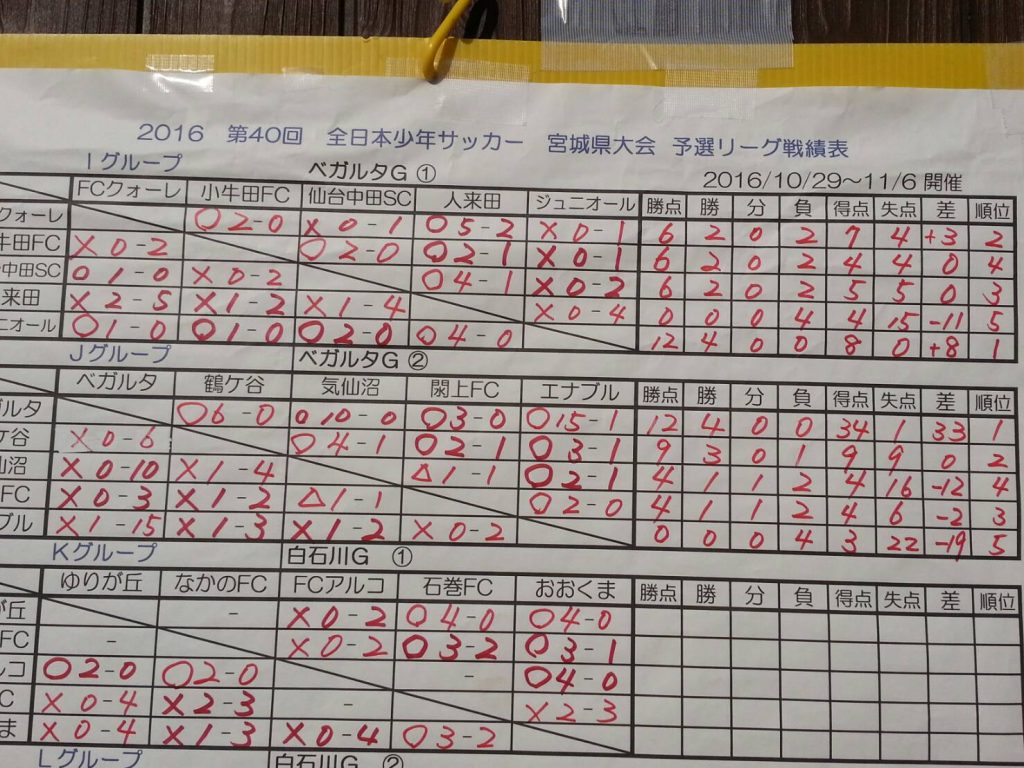 2016 第40回 全日本少年サッカー 宮城県大会 予選リーグ戦績表
Iグループ ベガルタG ① 2016/10/29～11/6 開催
FCクォーレ 小牛田FC 仙台中田SC 人来田 ジュニオール 勝点 勝 分 負 得点 失点 差 順位
クォーレ ○2-0 ×0-1 ○5-2 ×0-1 6 2 0 2 7 4 +3 2
牛田FC ×0-2 ○2-0 ○2-1 ×0-1 6 2 0 2 4 4 0 4
中田SC ○1-0 ×0-2 ○4-1 ×0-2 6 2 0 2 5 5 0 3
来田 ×2-5 ×1-2 ×1-4 ×0-4 0 0 0 4 4 15 -11 5
ニオール ○1-0 ○1-0 ○2-0 ○4-0 12 4 0 0 8 0 +8 1
Jグループ ベガルタG ②
ベガルタ 鶴ケ谷 気仙沼 閖上FC エナブル 勝点 勝 分 負 得点 失点 差 順位
ガルタ ○6-0 ○10-0 ○3-0 ○15-1 12 4 0 0 34 1 33 1
ケ谷 ×0-6 ○4-1 ○2-1 ○3-1 9 3 0 1 9 9 0 2
仙沼 ×0-10 ×1-4 △1-1 ○2-1 4 1 1 2 4 16 -12 4
FC ×0-3 ×1-2 △1-1 ○2-0 4 1 1 2 4 6 -2 3
ブル ×1-15 ×1-3 ×1-2 ×0-2 0 0 0 4 3 22 -19 5
Kグループ 白石川G ①
ゆりが丘 なかのFC FCアルコ 石巻FC おおくま 勝点 勝 分 負 得点 失点 差 順位
が丘 - ×0-2 ○4-0 ○4-0
FC - ×0-2 ○3-2 ○3-1
ルコ ○2-0 ○2-0 - ○4-0
C ×0-4 ×2-3 - ×2-3
ま ×0-4 ×1-3 ×0-4 ○3-2
Lグループ 白石川G ②